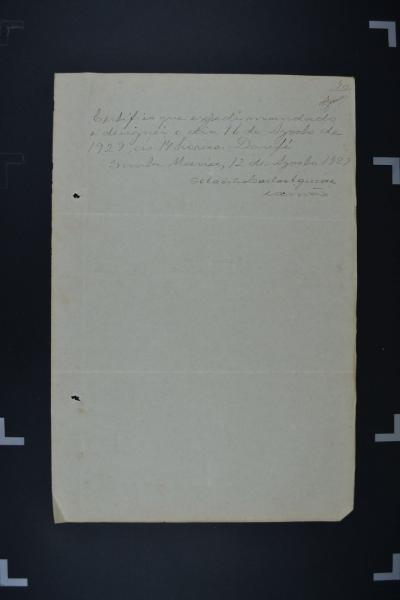 Certifico que expedi mandado
e designei o dia 16 de Agosto de
1929, ás 14 horas. Dou fé
12 de Agosto 1929
escrivão